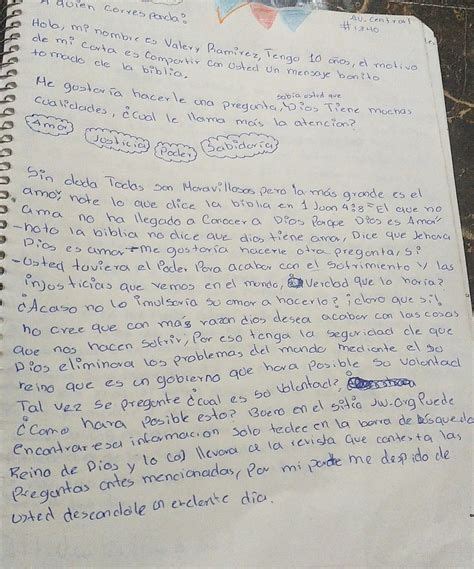 A quien corresponda:
AV. Central
#1340
Hola, mi nombre es Valery Ramirez, Tengo 10 años, el motivo
de mi carta es compartir con Usted un mensaje bonito
tomado de la biblia.
Me gostaría hacerle una pregunta, sabia osted que Dios Tiene muchas
cualidades, ¿cual le llama más la atencion?
Amor Josticia Poder Sabidoría
Sin duda Todas son Maravillosas pero la más grande es el
amor, note lo que dice la biblia en 1 Juan 4:8 "El que no
ama no ha llegado a Conocer a Dios Porque Dios es Amor"
-noto la biblia no dice que dios tiene amor, Dice que Jehova
Dios es amor -me gostaría hacerle otra pregunta, si
-Usted tuviera el Poder Para acabar con el sofrimiento y las
injosticias que vemos en el mundo, ¿Verdad que lo haria?
¿Acaso no lo imulsaria su amor a hacerlo? ¡claro que si!
no cree que con más razon dios desea acabar con las cosas
que nos hacen sofrir, Por eso tenga la seguridad de que
Dios eliminara los problemas del mundo mediante el so
reino que es un gobierno que hara posible so volontad
Tal vez se pregunte ¿cual es so volontad?,
¿Como hara Posible esto? Boeno en el sitio JW.Org Puede
encontrar esa informacion solo teclee en la barra de búsqueda
Reino de Dios y lo llevara a la revista que contesta las
Pregontas antes mencionadas, Por mi parte me despido de
Usted deseandole un exelente dia.